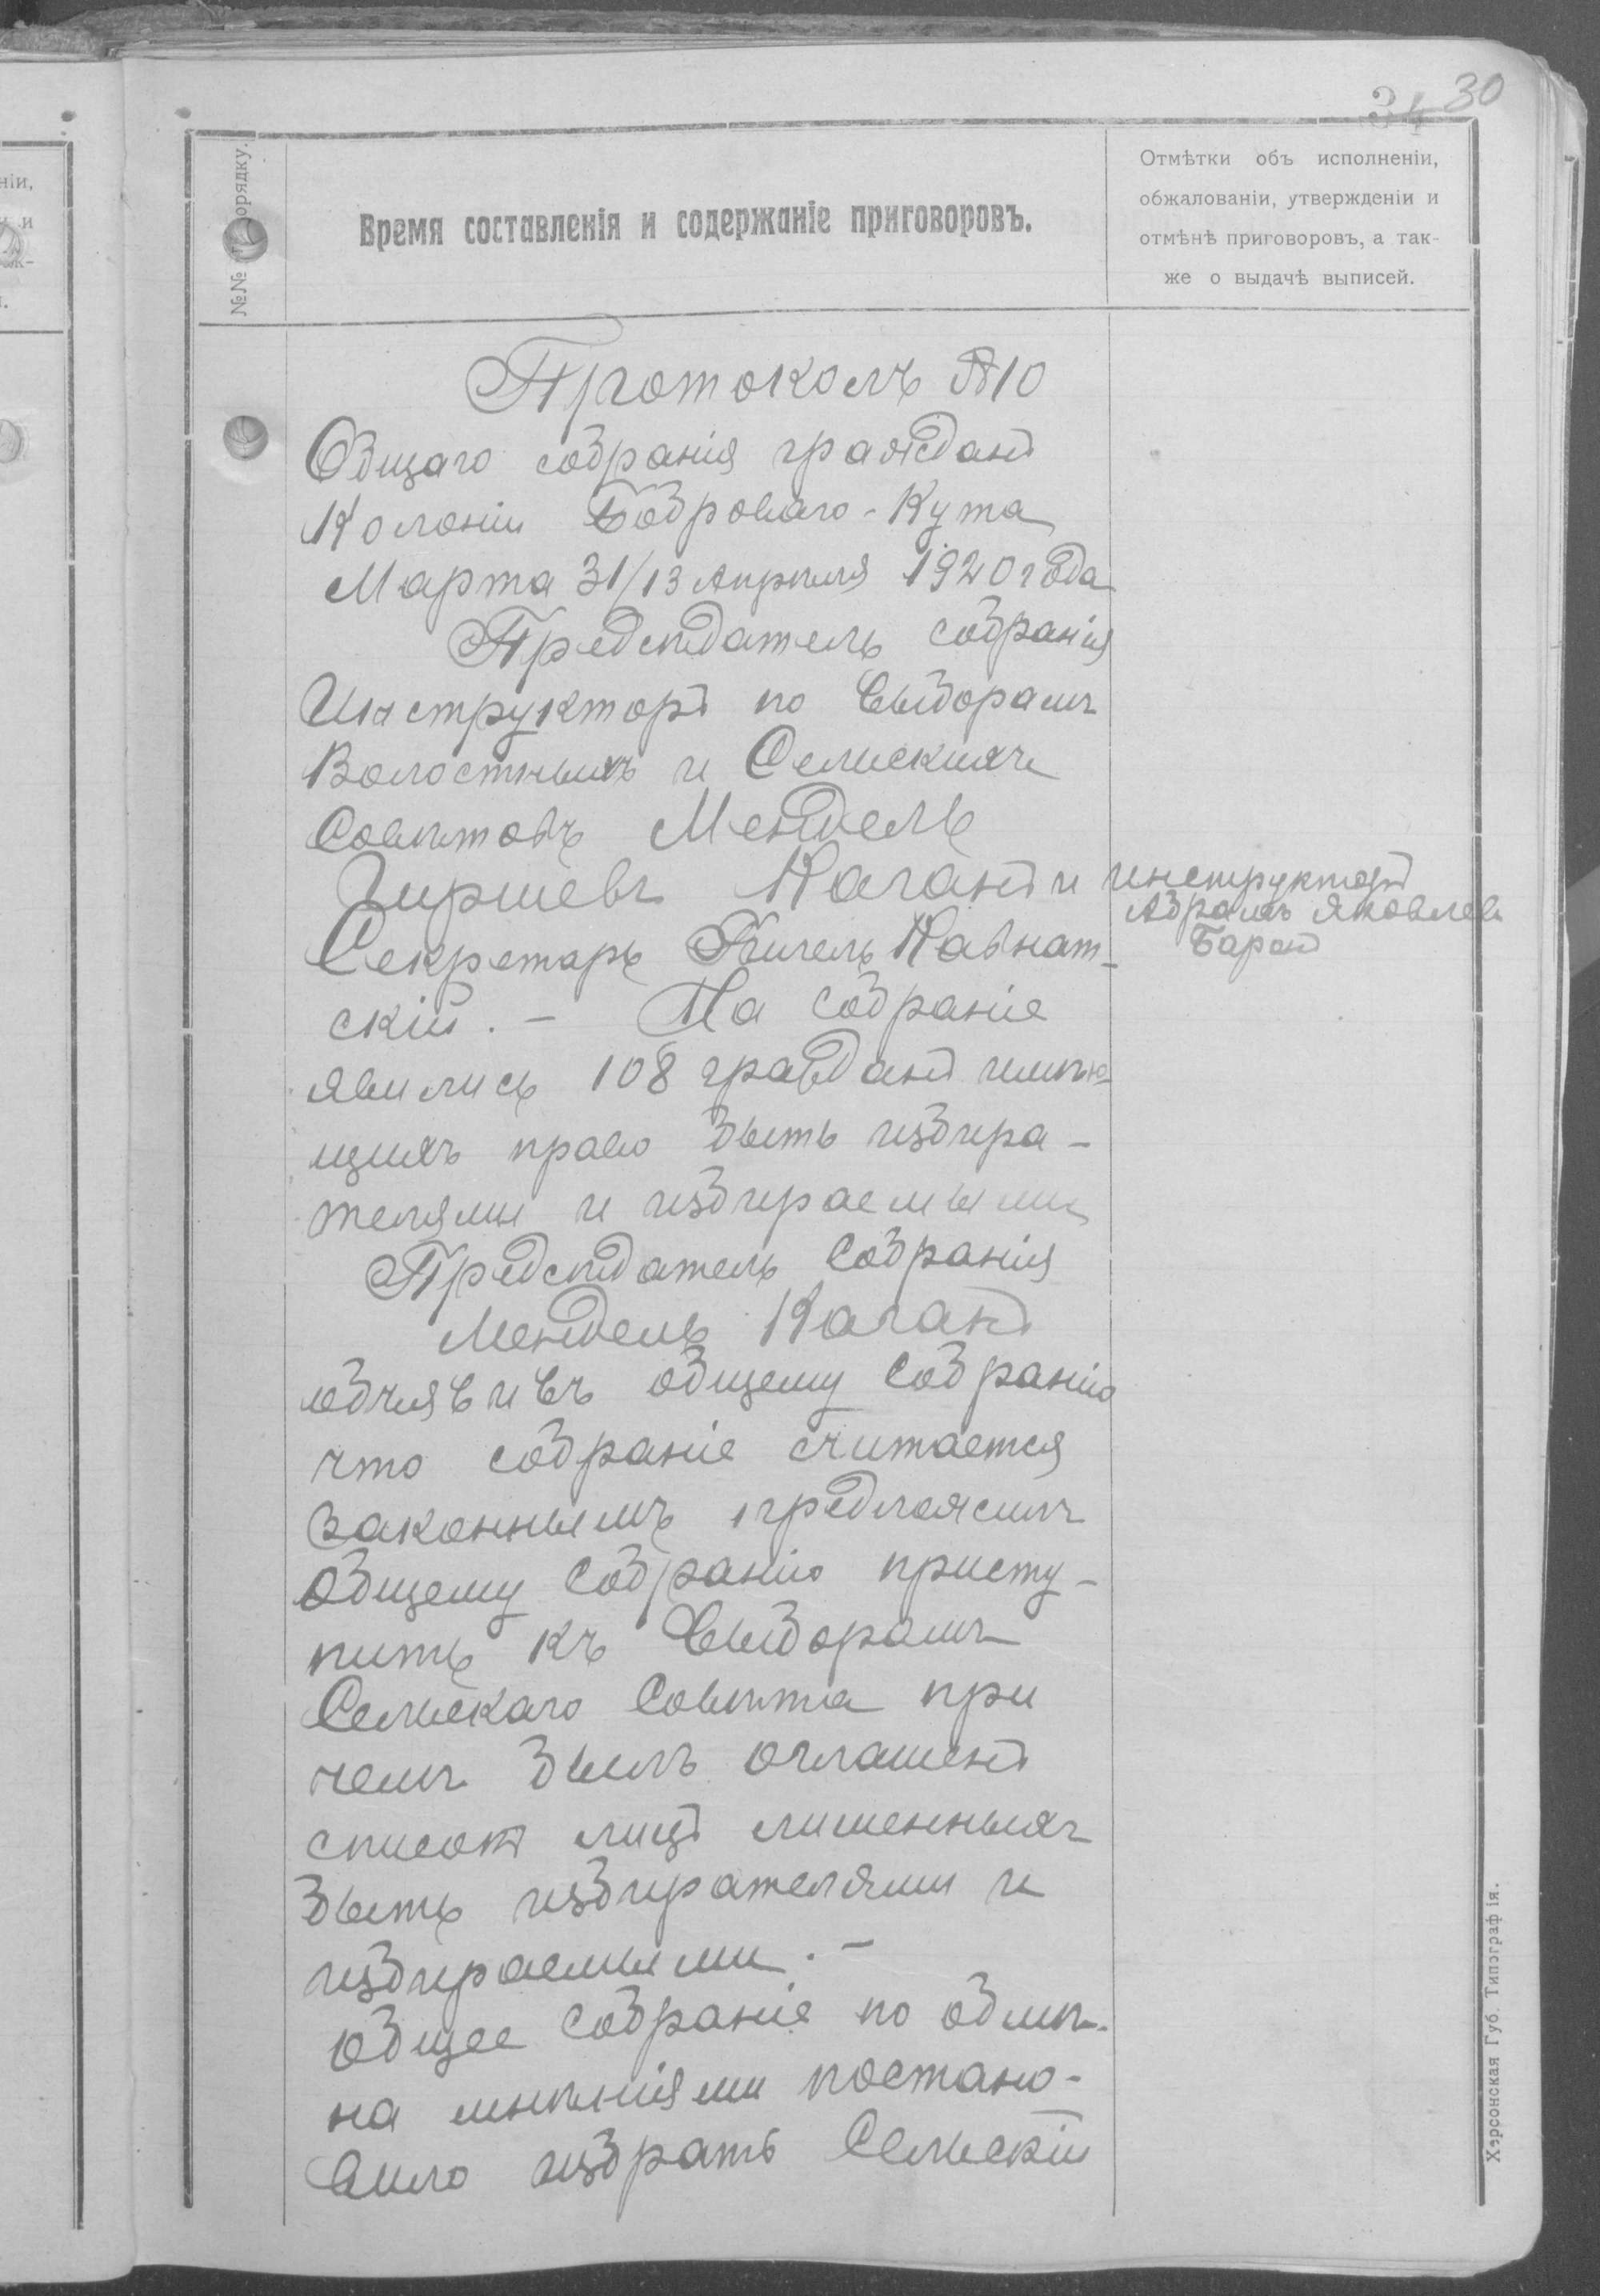 30
34
№№ порядку.
Время составленія и содержаніе приговоровъ.
Отмѣтки объ исполненіи,
обжалованіи, утвержденіи и
отмѣнѣ приговоровъ, а так-
же о выдачѣ выписей.
Протоколъ №10
Общаго собранія гражданъ
Колоніи Боброваго-Кута
Марта 31/13 Апрѣля 1920 года
Предсѣдатель собранія
Инструкторъ по выборамъ
Волостныхъ и Сельскихъ
Совѣтовъ Мендель
Гиршевъ Каганъ и инструкторъ
Абрамъ Яковлевъ
Секретарь Хиель Кавнат-
скій. - На собраніе
явились 108 граждан имѣю-
щихъ право быть избира-
телями и избираемыми
Предсѣдатель Собранія
Мендель Каганъ
объявивъ общему Собранію
что собраніе считается
законнымъ предложилъ
общему Собранію присту-
пить къ выборамъ
Сельскаго Совѣта при
чемъ былъ оглашенъ
список лицъ лишенныхъ
быть избирателями и
избираемыми. -
Общее Собраніе по обмѣ-
на мнѣніями постано-
вило избрать Сельскій
Херсонская Губ. Типографія.